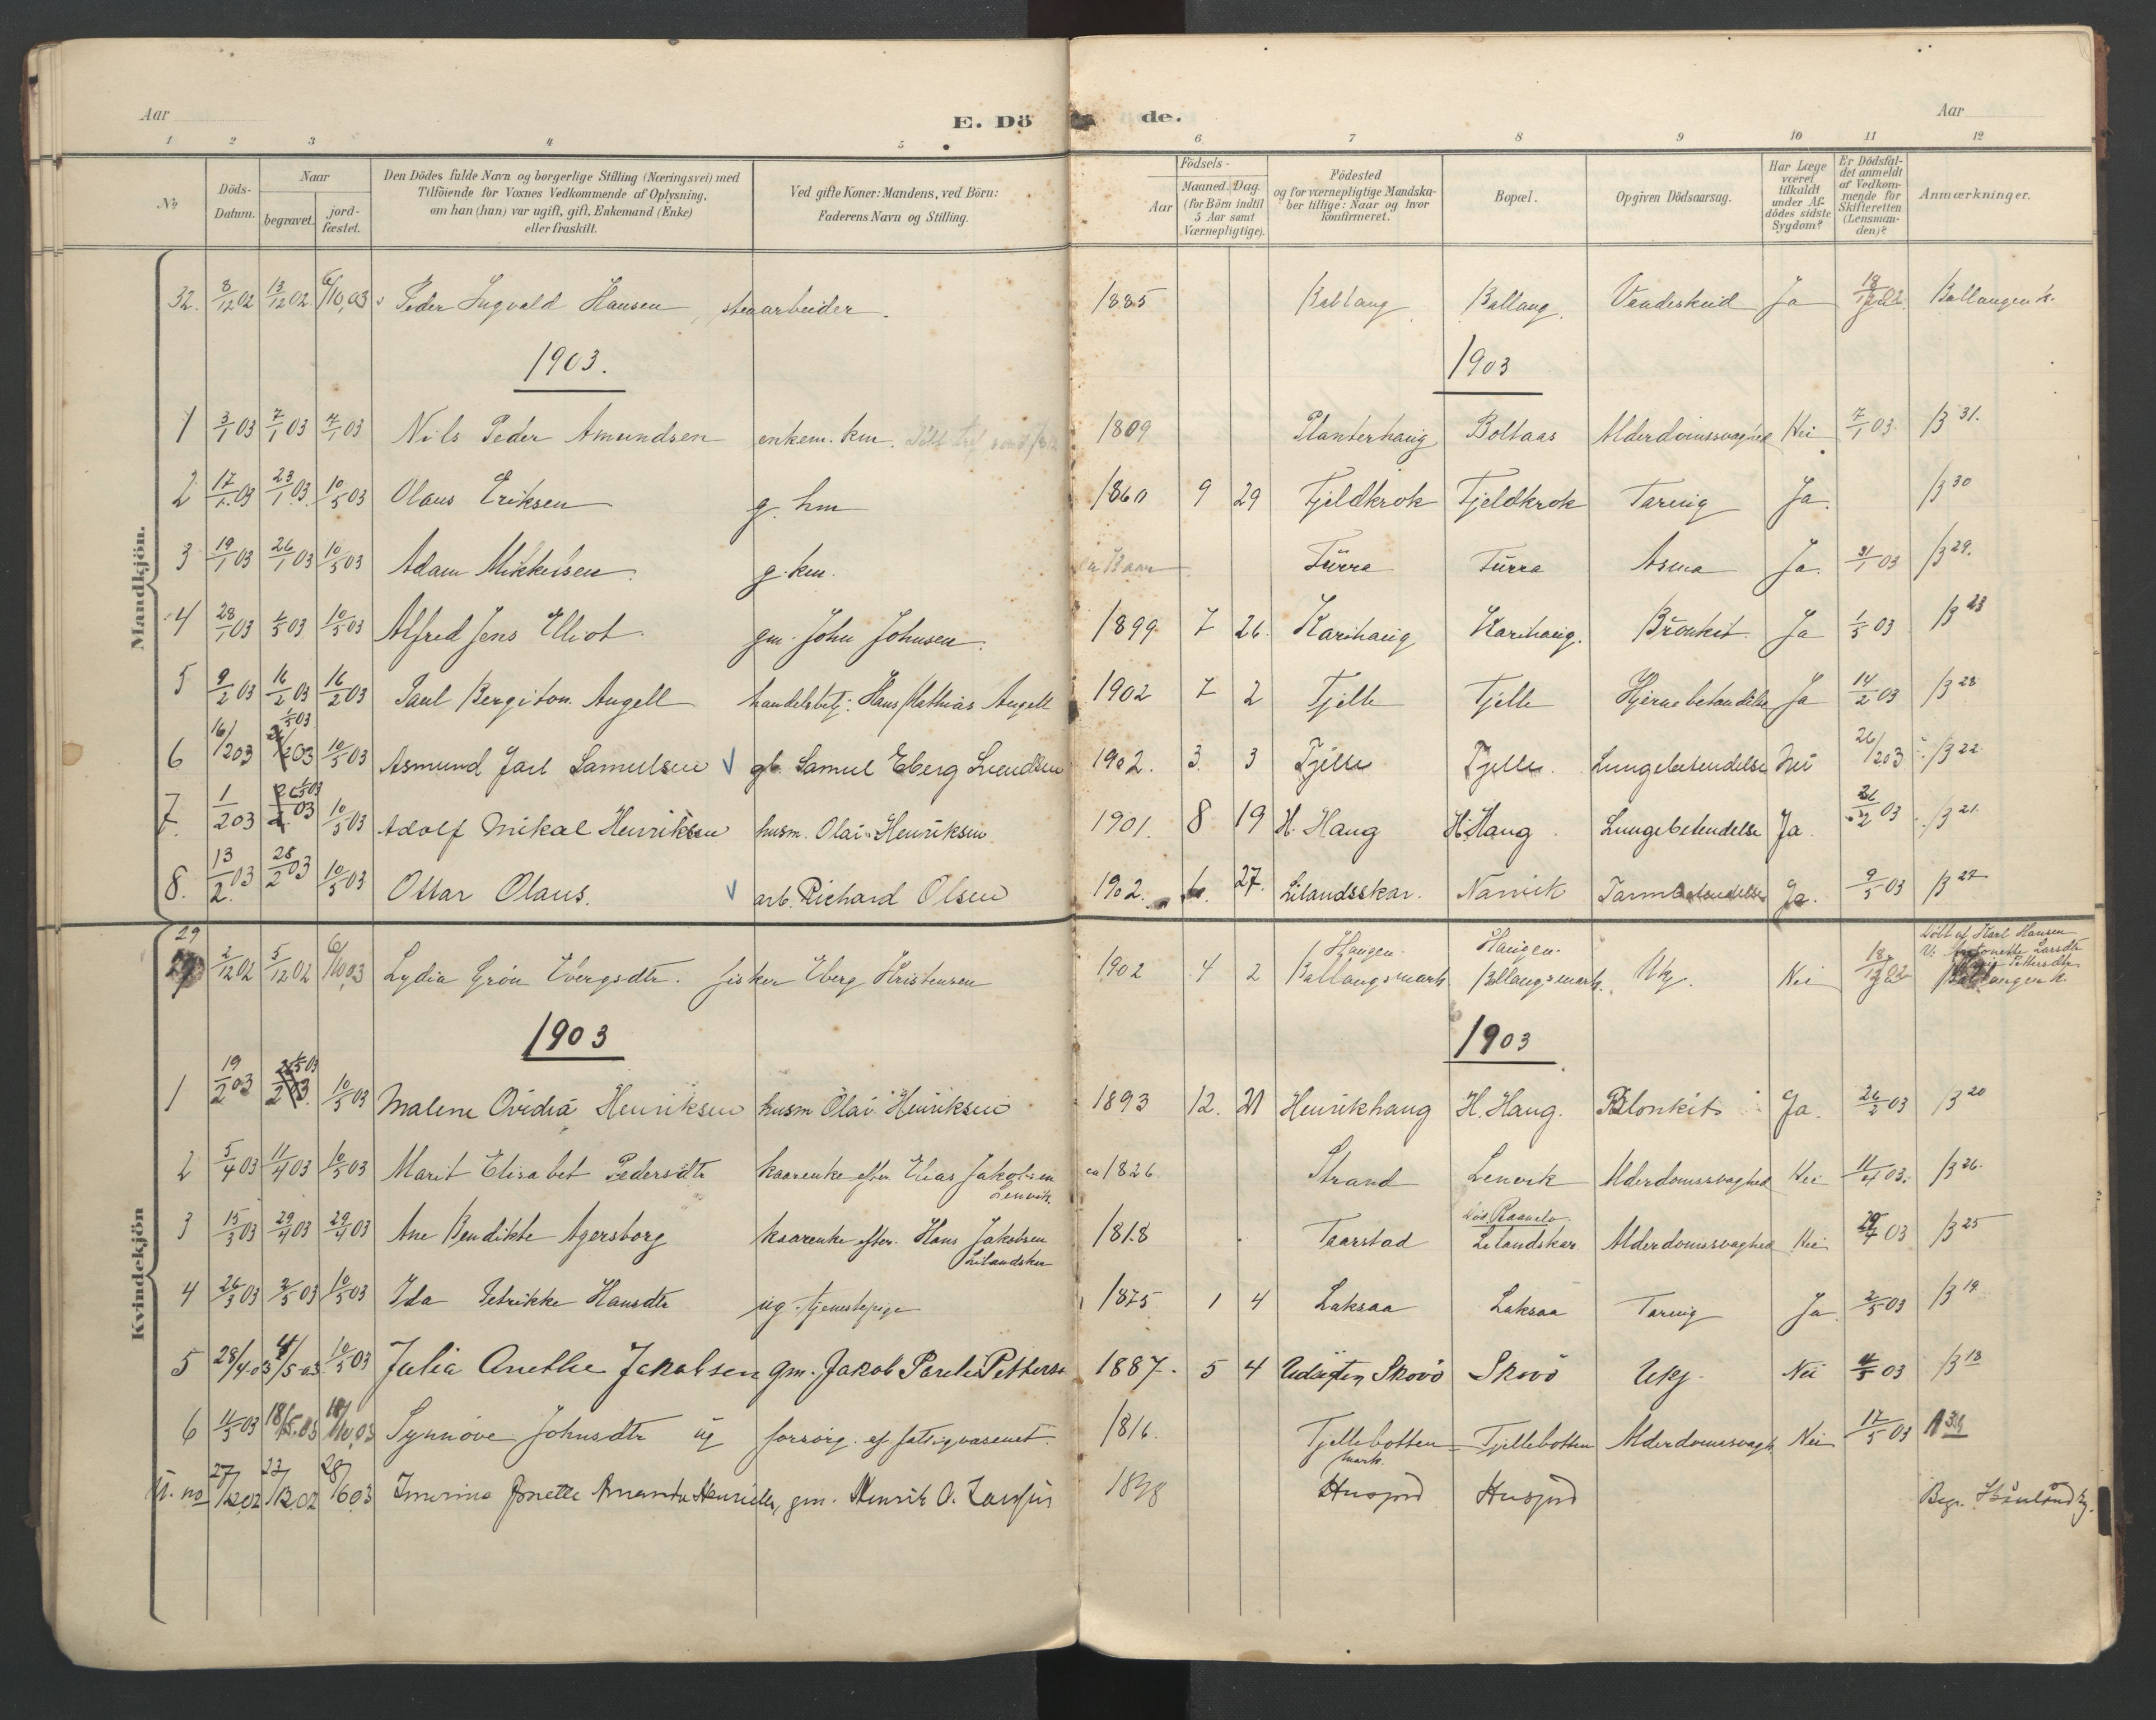 Aar
E. Dö de.
Aar
1 2 3 4 5 6 7 8 9 10 11 12
No
Döds-
Datum.
Naar
begravet.
jord-
fæstet.
Den Dödes fulde Navn og borgerlige Stilling (Næringsvei) med
Tilföiende for Voxnes Vedkommende af Oplysning,
om han (hun) var ugift, gift, Enkemand (Enke)
eller fraskilt.
Ved gifte Koner: Mandens, ved Börn:
Faderens Navn og Stilling.
Födsels-
Aar
Maaned. Dag.
(for Börn indtil
5 Aar samt
Værnepligtige).
Födested
og for værnepligtige Mandska-
ber tillige: Naar og hvor
konfirmeret.
Bopæl.
Opgiven Dödsaarsag.
Har Læge
været
tilkaldt
under Af-
dödes sidste
Sygdom?
Er Dödsfal-
det anmeldt
af Vedkom-
mende for
Skifteretten
(Lensman-
den)?
Anmærkninger.
Mandkjön.
32. 8/12 02 13/12 02 6/10,03 Peder Ingvald Hansen, stenarbeider. 1885 Ballang Ballang Vandeskeid Ja Ballangen k.
1903. 1903
1 3/1 03 7/1 03 7/1 03 Nils Peder Amundsen enkem. km. 1809 Planterhaug Boltaas Alderdomssvaghed Nei 7/1 03. B 31.
2 17/1 03 23/1 03 10/5 03 Olaus Eriksen g. hm 1860 9 29 Fjeldkrok Fjeldkrok Tarvrig Ja. B 30
3 19/1 03 26/1 03 10/5 03 Adam Mikkelsen. g. km. Turra Turra Asma Ja. 31/1 03 B 29.
4 28/1 03 1/5 03 10/5 03 Alfred Jens Elliot. gm. John Johnsen. 1899 7 26. Karihaug Karihaug. Bronkit. Ja 1/5 03 B 23
5 9/2 03 16/2 03 16/2 03 Paul Bergiton Angell handelsbetj: Hans Mathias Angell 1902 7 2 Fjelle Fjelle Hjernebetændelse Ja 14/2 03 B 28
6 16/2 03 1/5 03 10/5 03 Asmund Jarl Samulsen gb. Samul Eberg 1902. 3. 3 Fjelle Fjelle. Lungebetendelse Nei 26/2 03 B 22
7. 1/2 03 1/5 03 10/5 03 Adolf Mikal Henriksen husm. Olai Henriksen 1901. 8 19 H. Haug H. Haug. Lungebetendelse Ja. 26/2 03 B 21
8. 13/2 03 28/2 03 10/5 03 Ottar Olaus. arb. Richard Olsen 1902. 6. 27. Lilandsskar. Narvik Tarmbetendelse Ja. 9/5 03 B 27
Kvindekjön
29 2/12 02 5/12 02 6/10,03 Lydia Grön Ebergsdtr. fisker Eberg Kristensen 1902 4 2 Haugen. Ballangsmark Haugen. Ballangsmark. Ukj. Nei Ballangen k.
Döbt af Karl Hansen
1903 1903
1 19/2 03 1/5 03 10/5 03 Malene Ovidia Henriksen husm Olai Henriksen 1893 12. 21 Henrikhaug H. Haug. Blonkit Ja. 26/2 03 B 20
2 5/4 03 11/4 03 10/5 03 Marit Elisabet Pedersdtr kaarenke efter Elias Jakobsen Lenvik ca 1826. Strand Lenvik Alderdomssvaghed Nei 11/4 03. B 26.
3 15/3 03 29/4 03 29/4 03 Ane Bendikte Agersborg kaarenke efter. Hans Jakobsen Lilandskar 1818 Taarstad Lilandskar Alderdomssvaghed Nei 29/4 03 B 25
4 26/3 03 2/5 03 10/5 03 Ida Petrikke Hansdtr ug. tjenestepige 1875 1 4 Laksaa Laksaa Tarvrig Ja 2/5 03 B 19
5 28/4.03 4/5.03 10/5 03 Julia Anethe Jakobsen gm. Jakob Pareli Petters. 1887. 5 4 Udsigten Skovö Skovö Ukj. Nei 4/5 03 B 18
6 11/5 03 18/5.03 18/10,03 Synnöve Johnsdtr ug forsörg. af fattigvæsenet. 1816. Fjellebotten mark. Fjellebotten Alderdomssvagh Nei 17/5 03
U. no 27/12 02 28/6 03 Amanda gm. Henrik O. 1838 Husjord Husjord Begr.